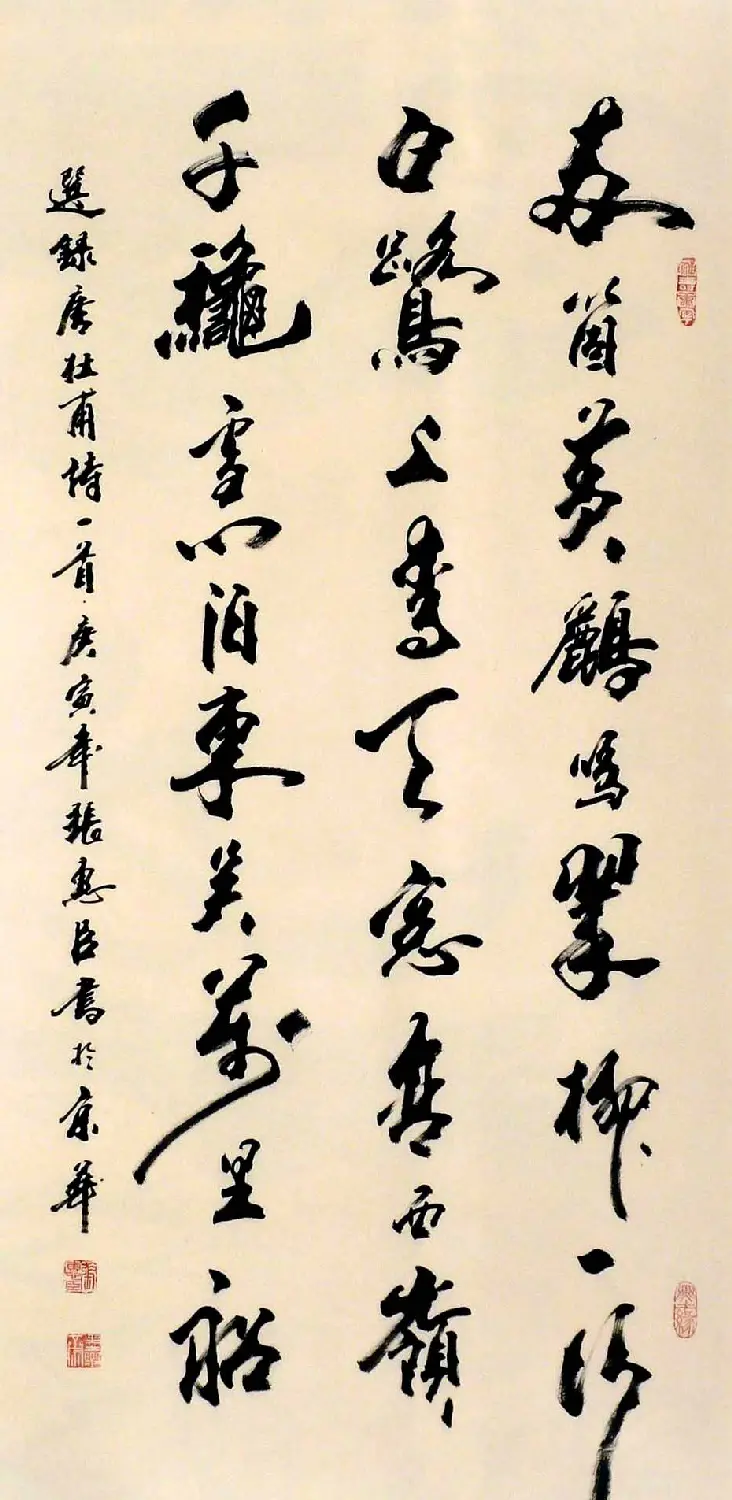 兩箇黃鸝鳴翠柳一行
白鷺上青天窓含西嶺
千龝雪門泊東吳萬里船
選錄唐杜甫詩一首庚寅年張惠臣書於京華